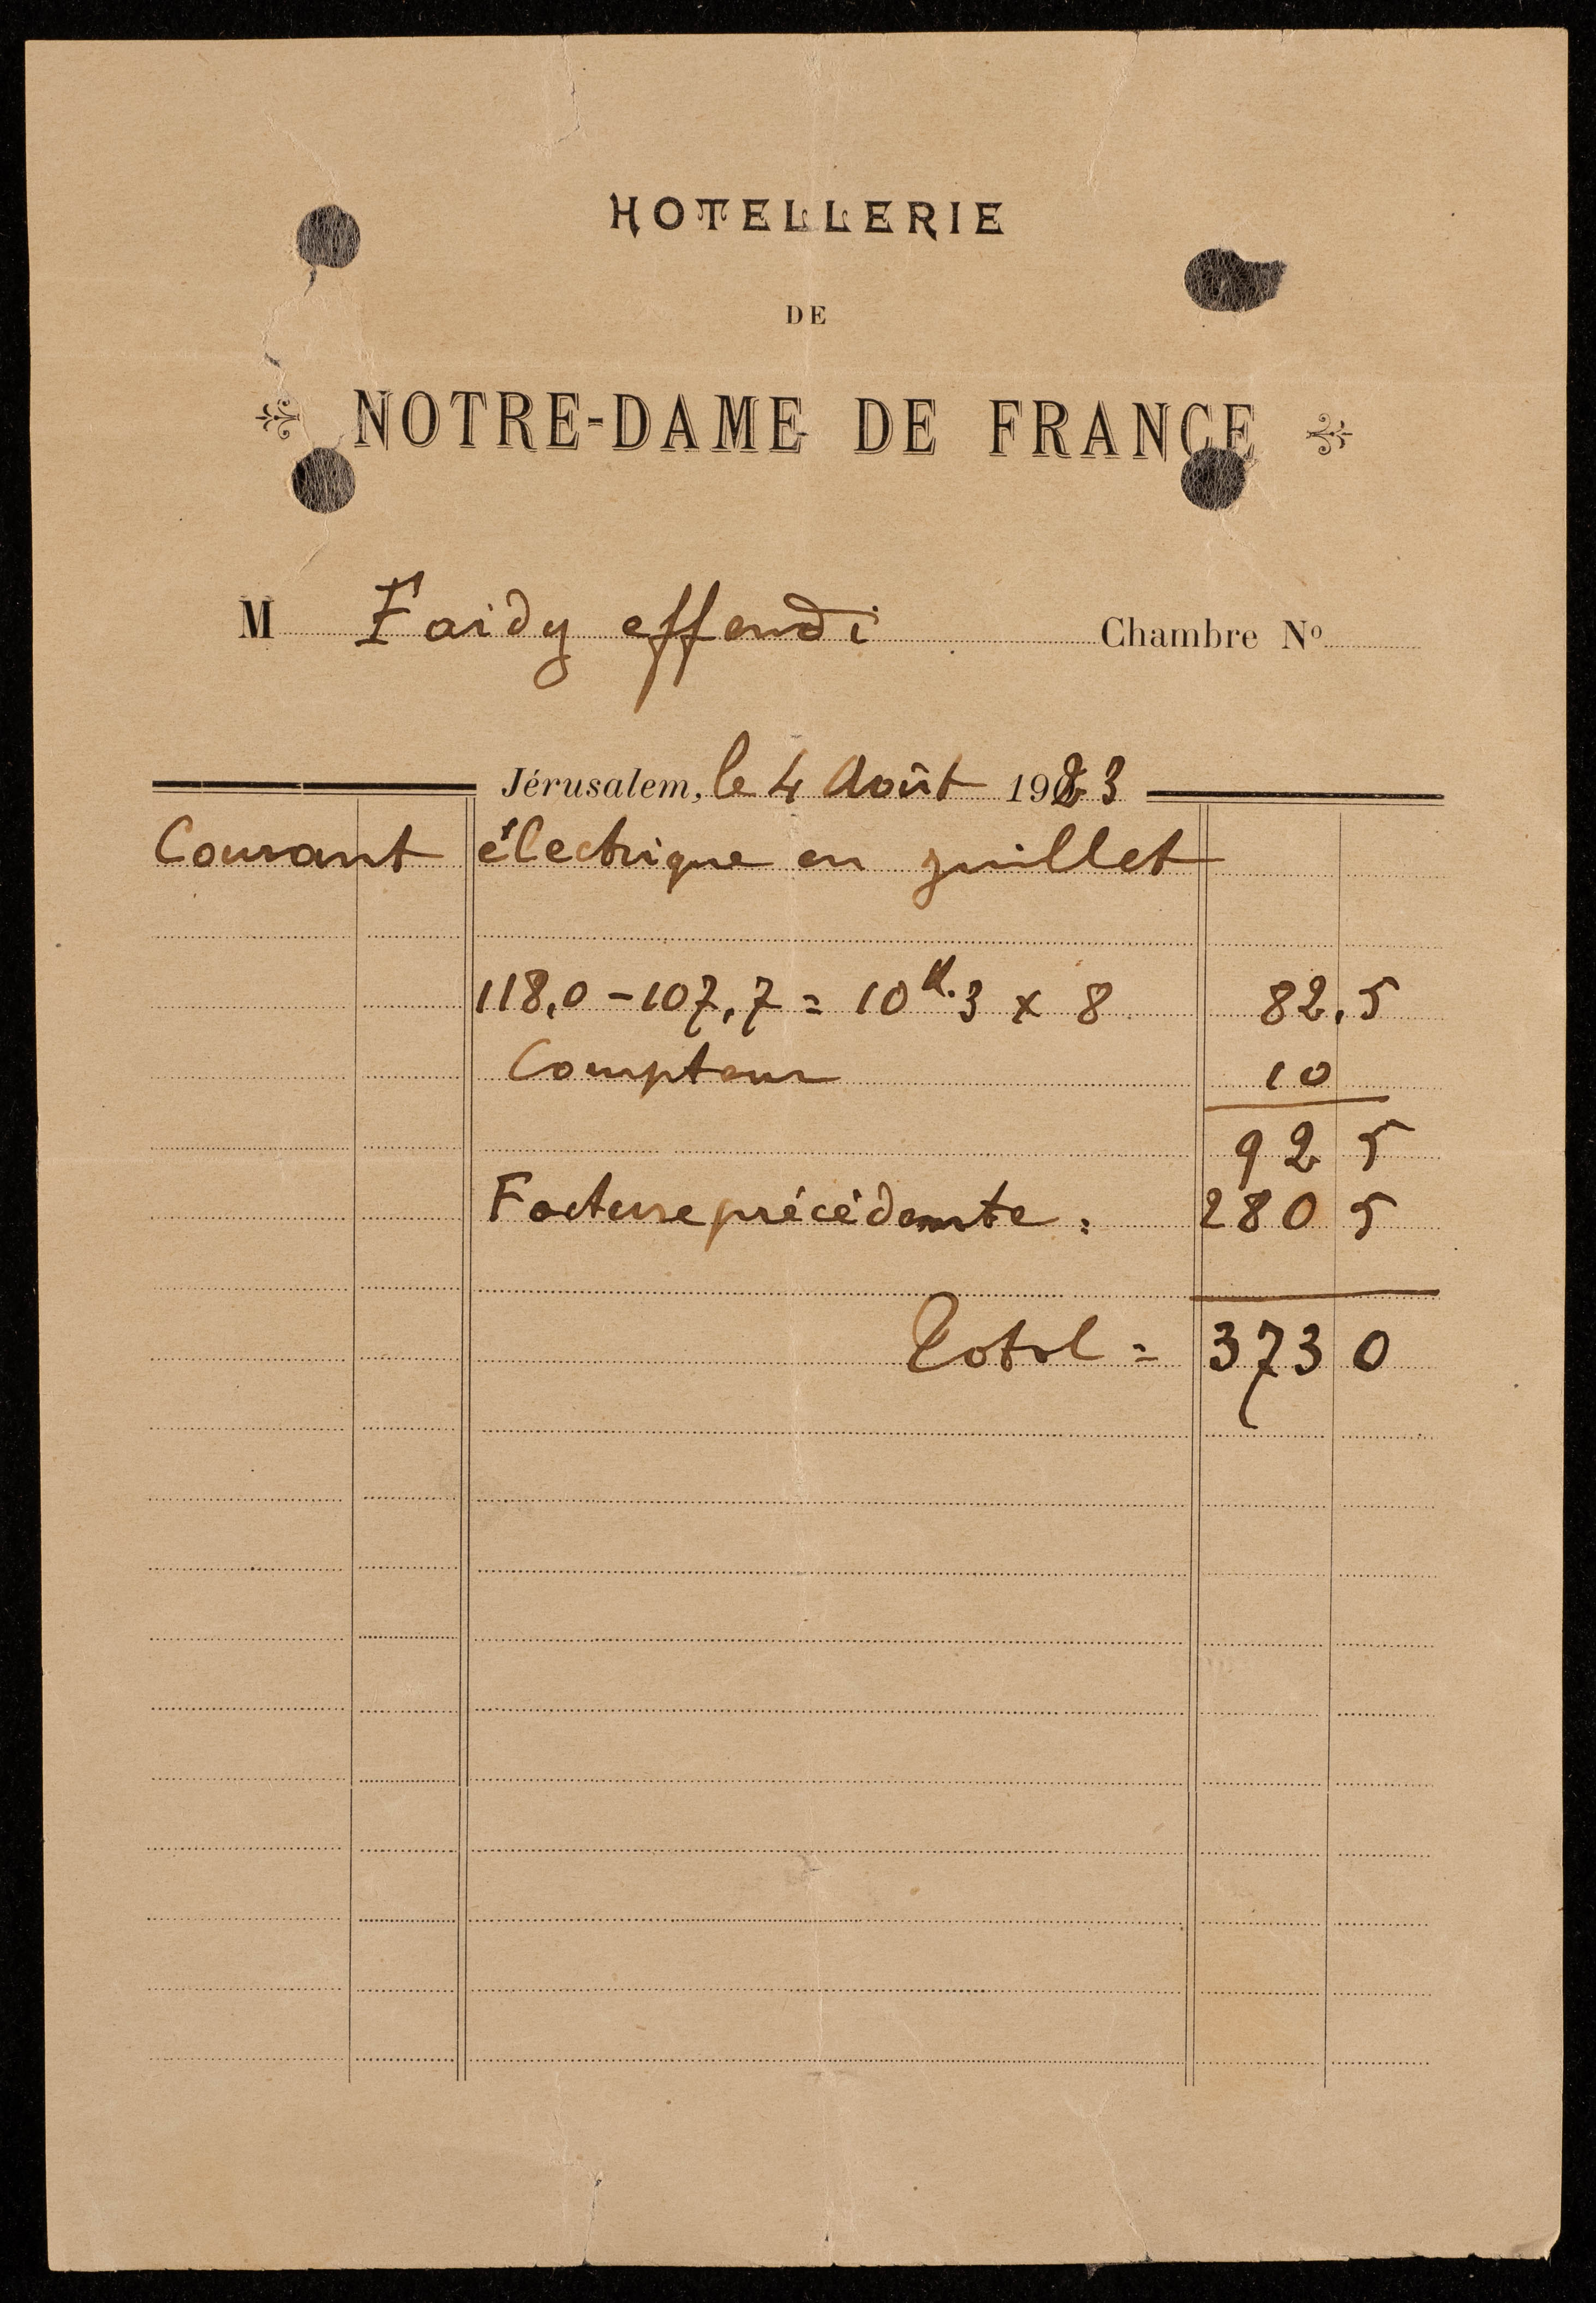 HOTELLERIE
DE
NOTRE-DAME DE FRANCE
M Faidy effendi Chambre Nº
Jérusalem, le 4 Août 1923
Courant électrique en juillet
118,0 - 107,7 = 10k.3 x 8 82,5
Compteur 10
92 5
Facture précédente : 280 5
Total = 373 0